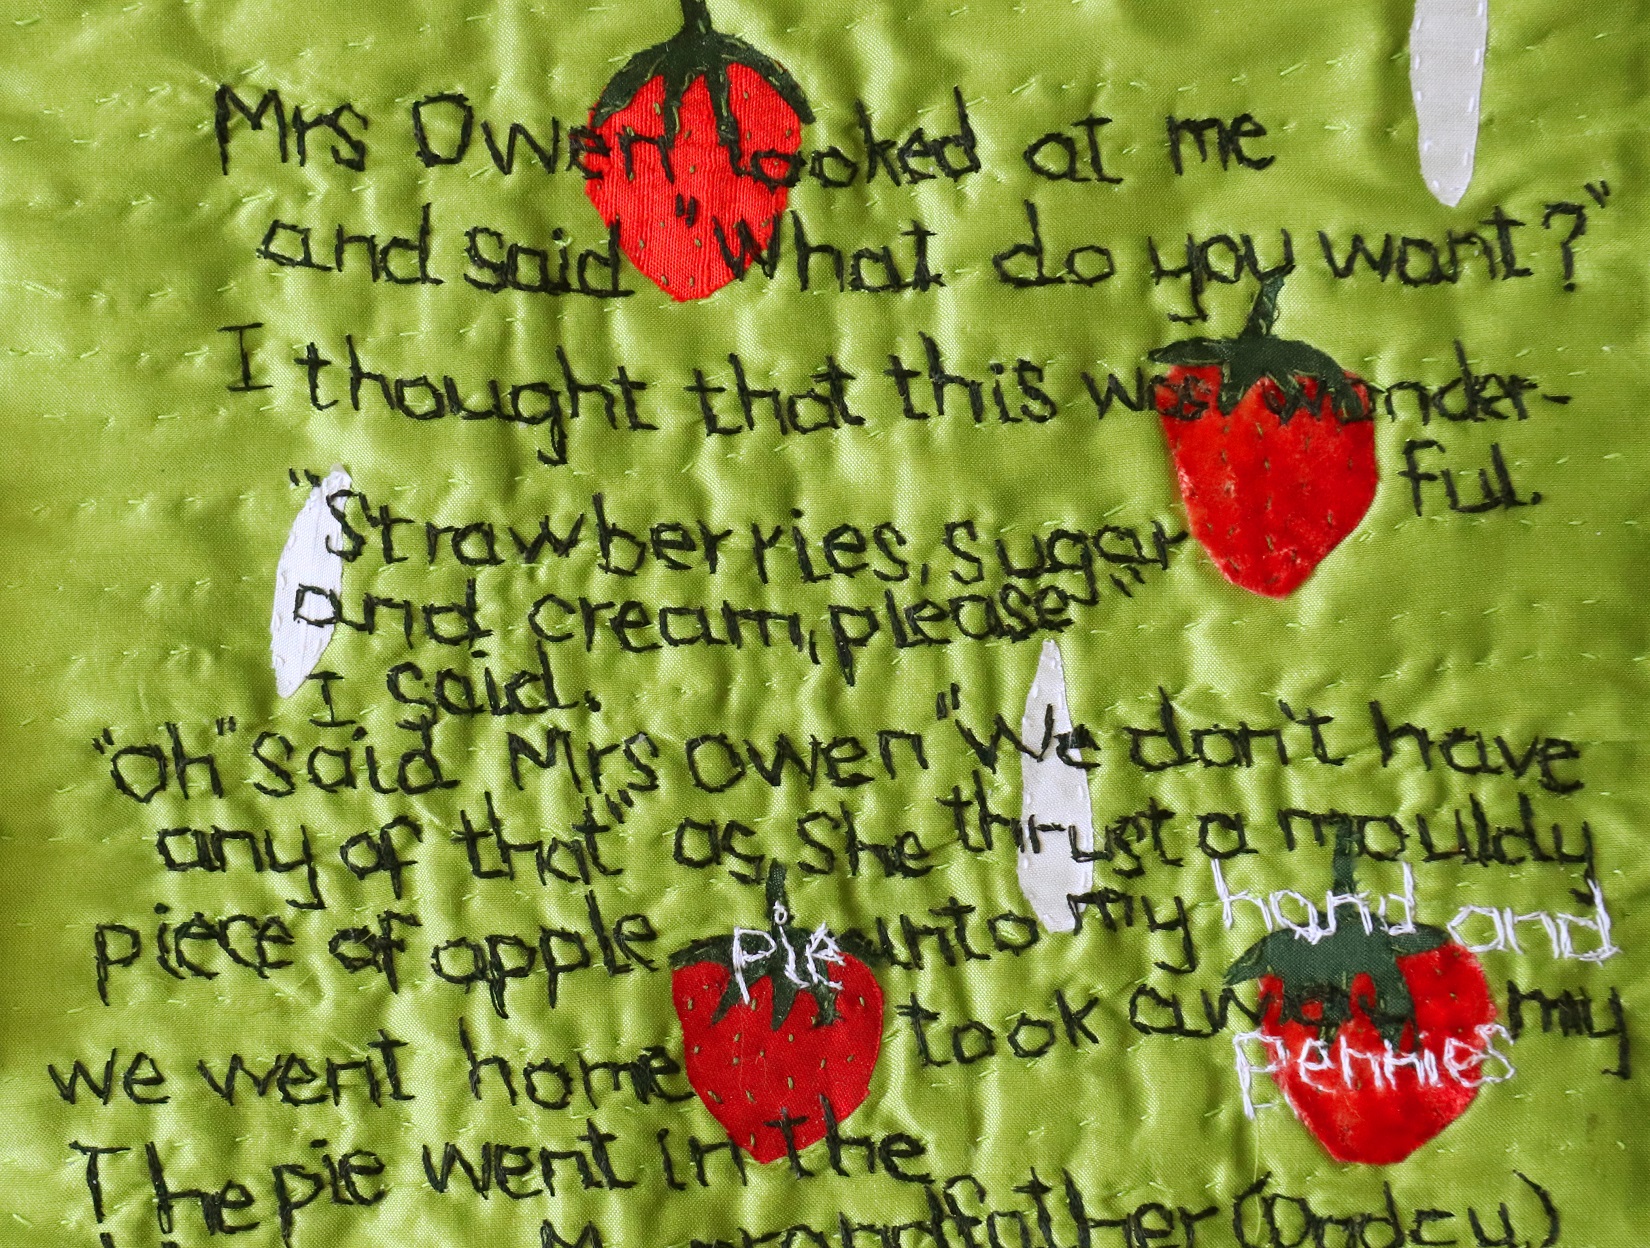 Mrs Owen looked at me
and said "What do you want?"
I thought that this was wonder-
ful.
"Strawberries, sugar
and cream, please"
I said.
"Oh" said Mrs Owen "We don't have
any of that" as she thrust a mouldy
piece of apple pie unto my hand and
took away my
pennies
we went home
The pie went in the
My grandfather (Dadcu)